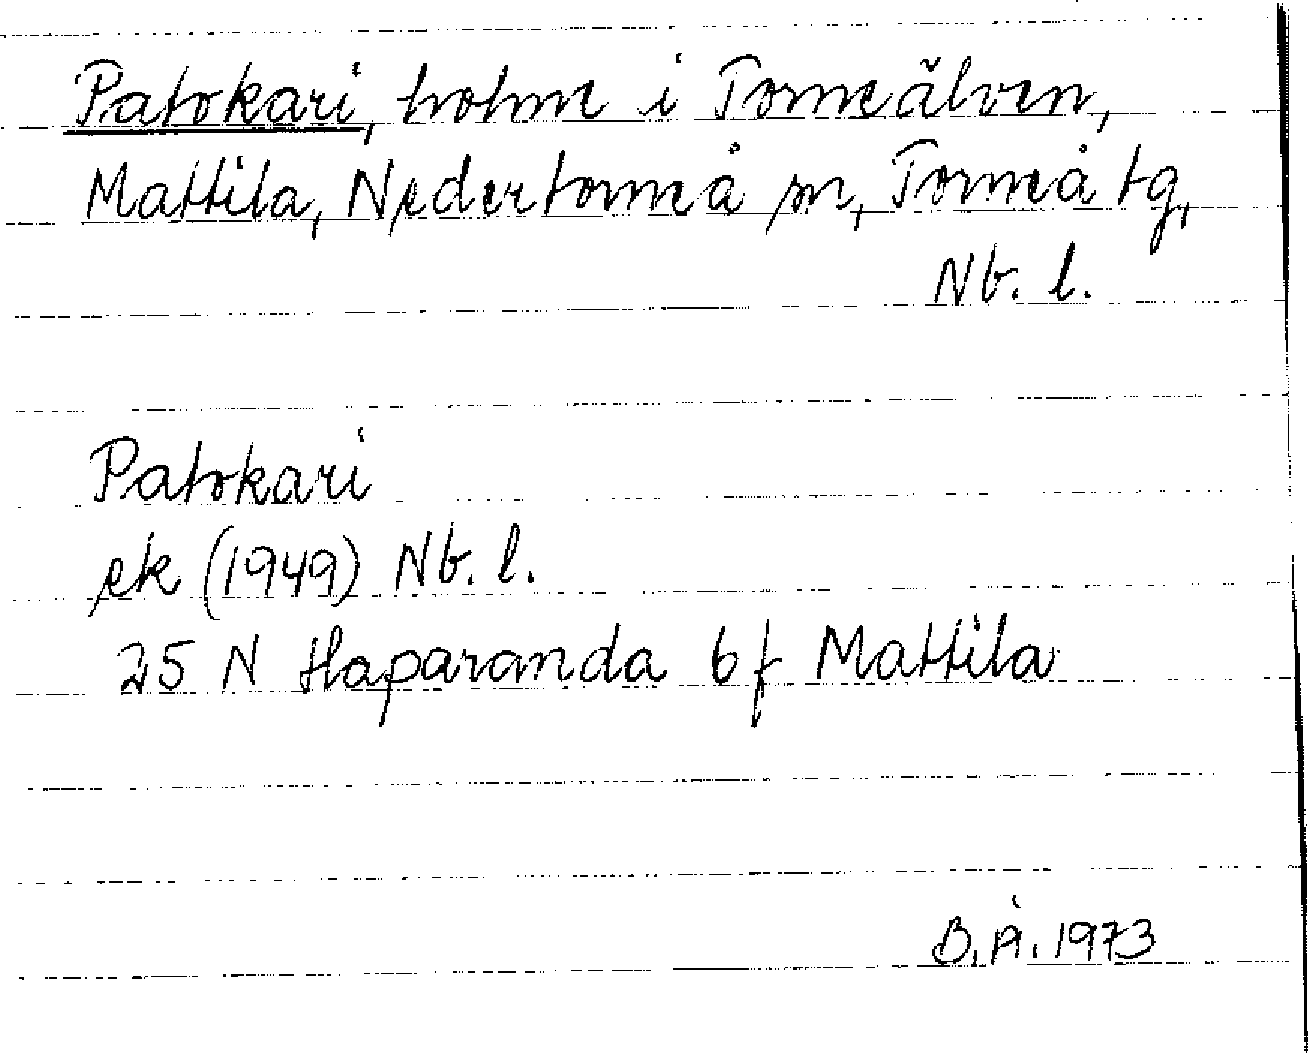 Patokari, holme i Torneälven,
Mattila, Nedertorneå sn, Torneå tg,
Nb. l.
Patokari
ek (1949) Nb. l.
25 N Haparanda 6f Mattila
B.Å. 1973